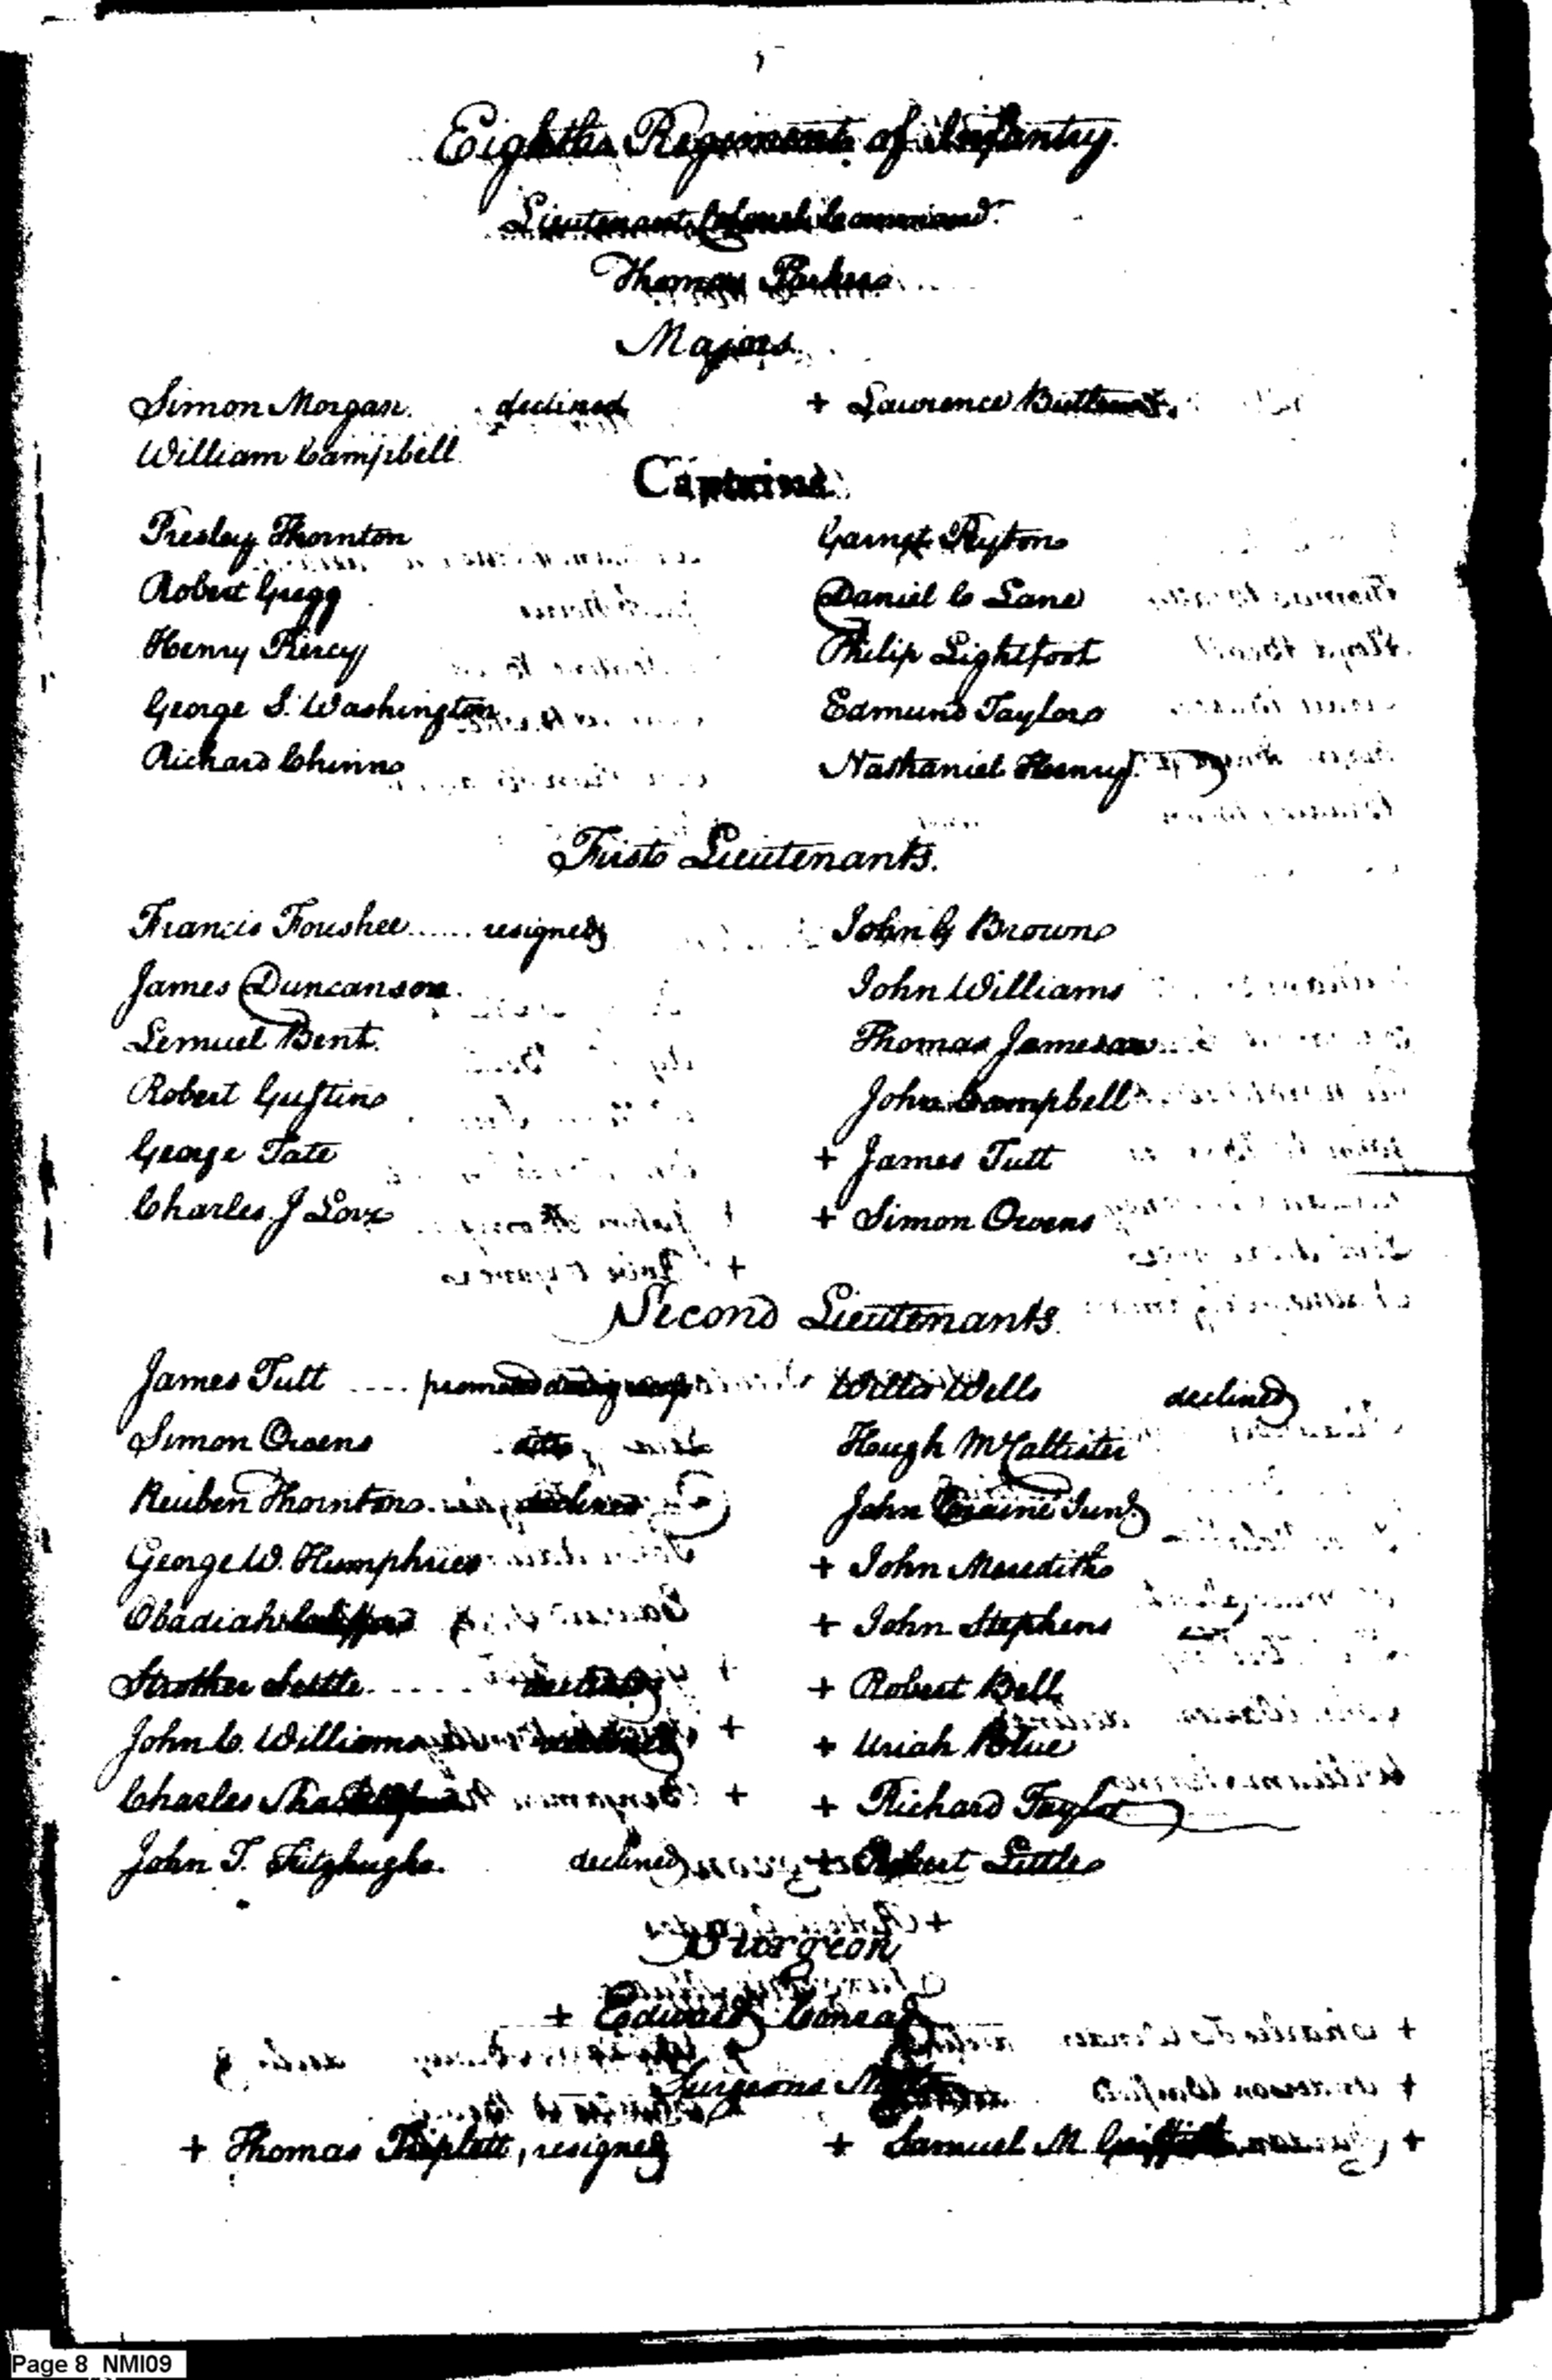 Eighth Regiment of Infantry.
Lieutenant Colonel Command.t
Thomas Parker
Majors.
Simon Morgan. declined + Lawrence Butler
William Campbell
Captains
Presley Thornton Garnet Peyton
Robert Gregg Daniel C Lane
Henry Piercy Philip Lightfoot
George S. Washington Edmund Taylor
Richard Chinn Nathaniel Henry
First Lieutenants.
Francis Foushee...... resigned John G Brown
James Duncanson. John Williams
Lemuel Bent. Thomas Jameson
Robert Gustin John Campbell
George Tate + James Tutt
Charles J Love + Simon Owens
Second Lieutenants.
James Tutt .... promoted Willis Wells declined
Simon Owens ditto Hough McCallister
Reuben Thornton declined John Craine Jun.
George W. Humphries + John Meredith
Obadiah Clifford + John Stephens
Strother Settle..... declined + Robert Bell
John C. Williams declined + Uriah Blue
Charles Shackelford + Richard Taylor
John T. Fitzhugh. declined + Robert Little
Surgeon
+ Edward Conrad
Surgeons Mates
+ Thomas Triplett, resigned + Samuel M Griffith
Page 8 NMI09